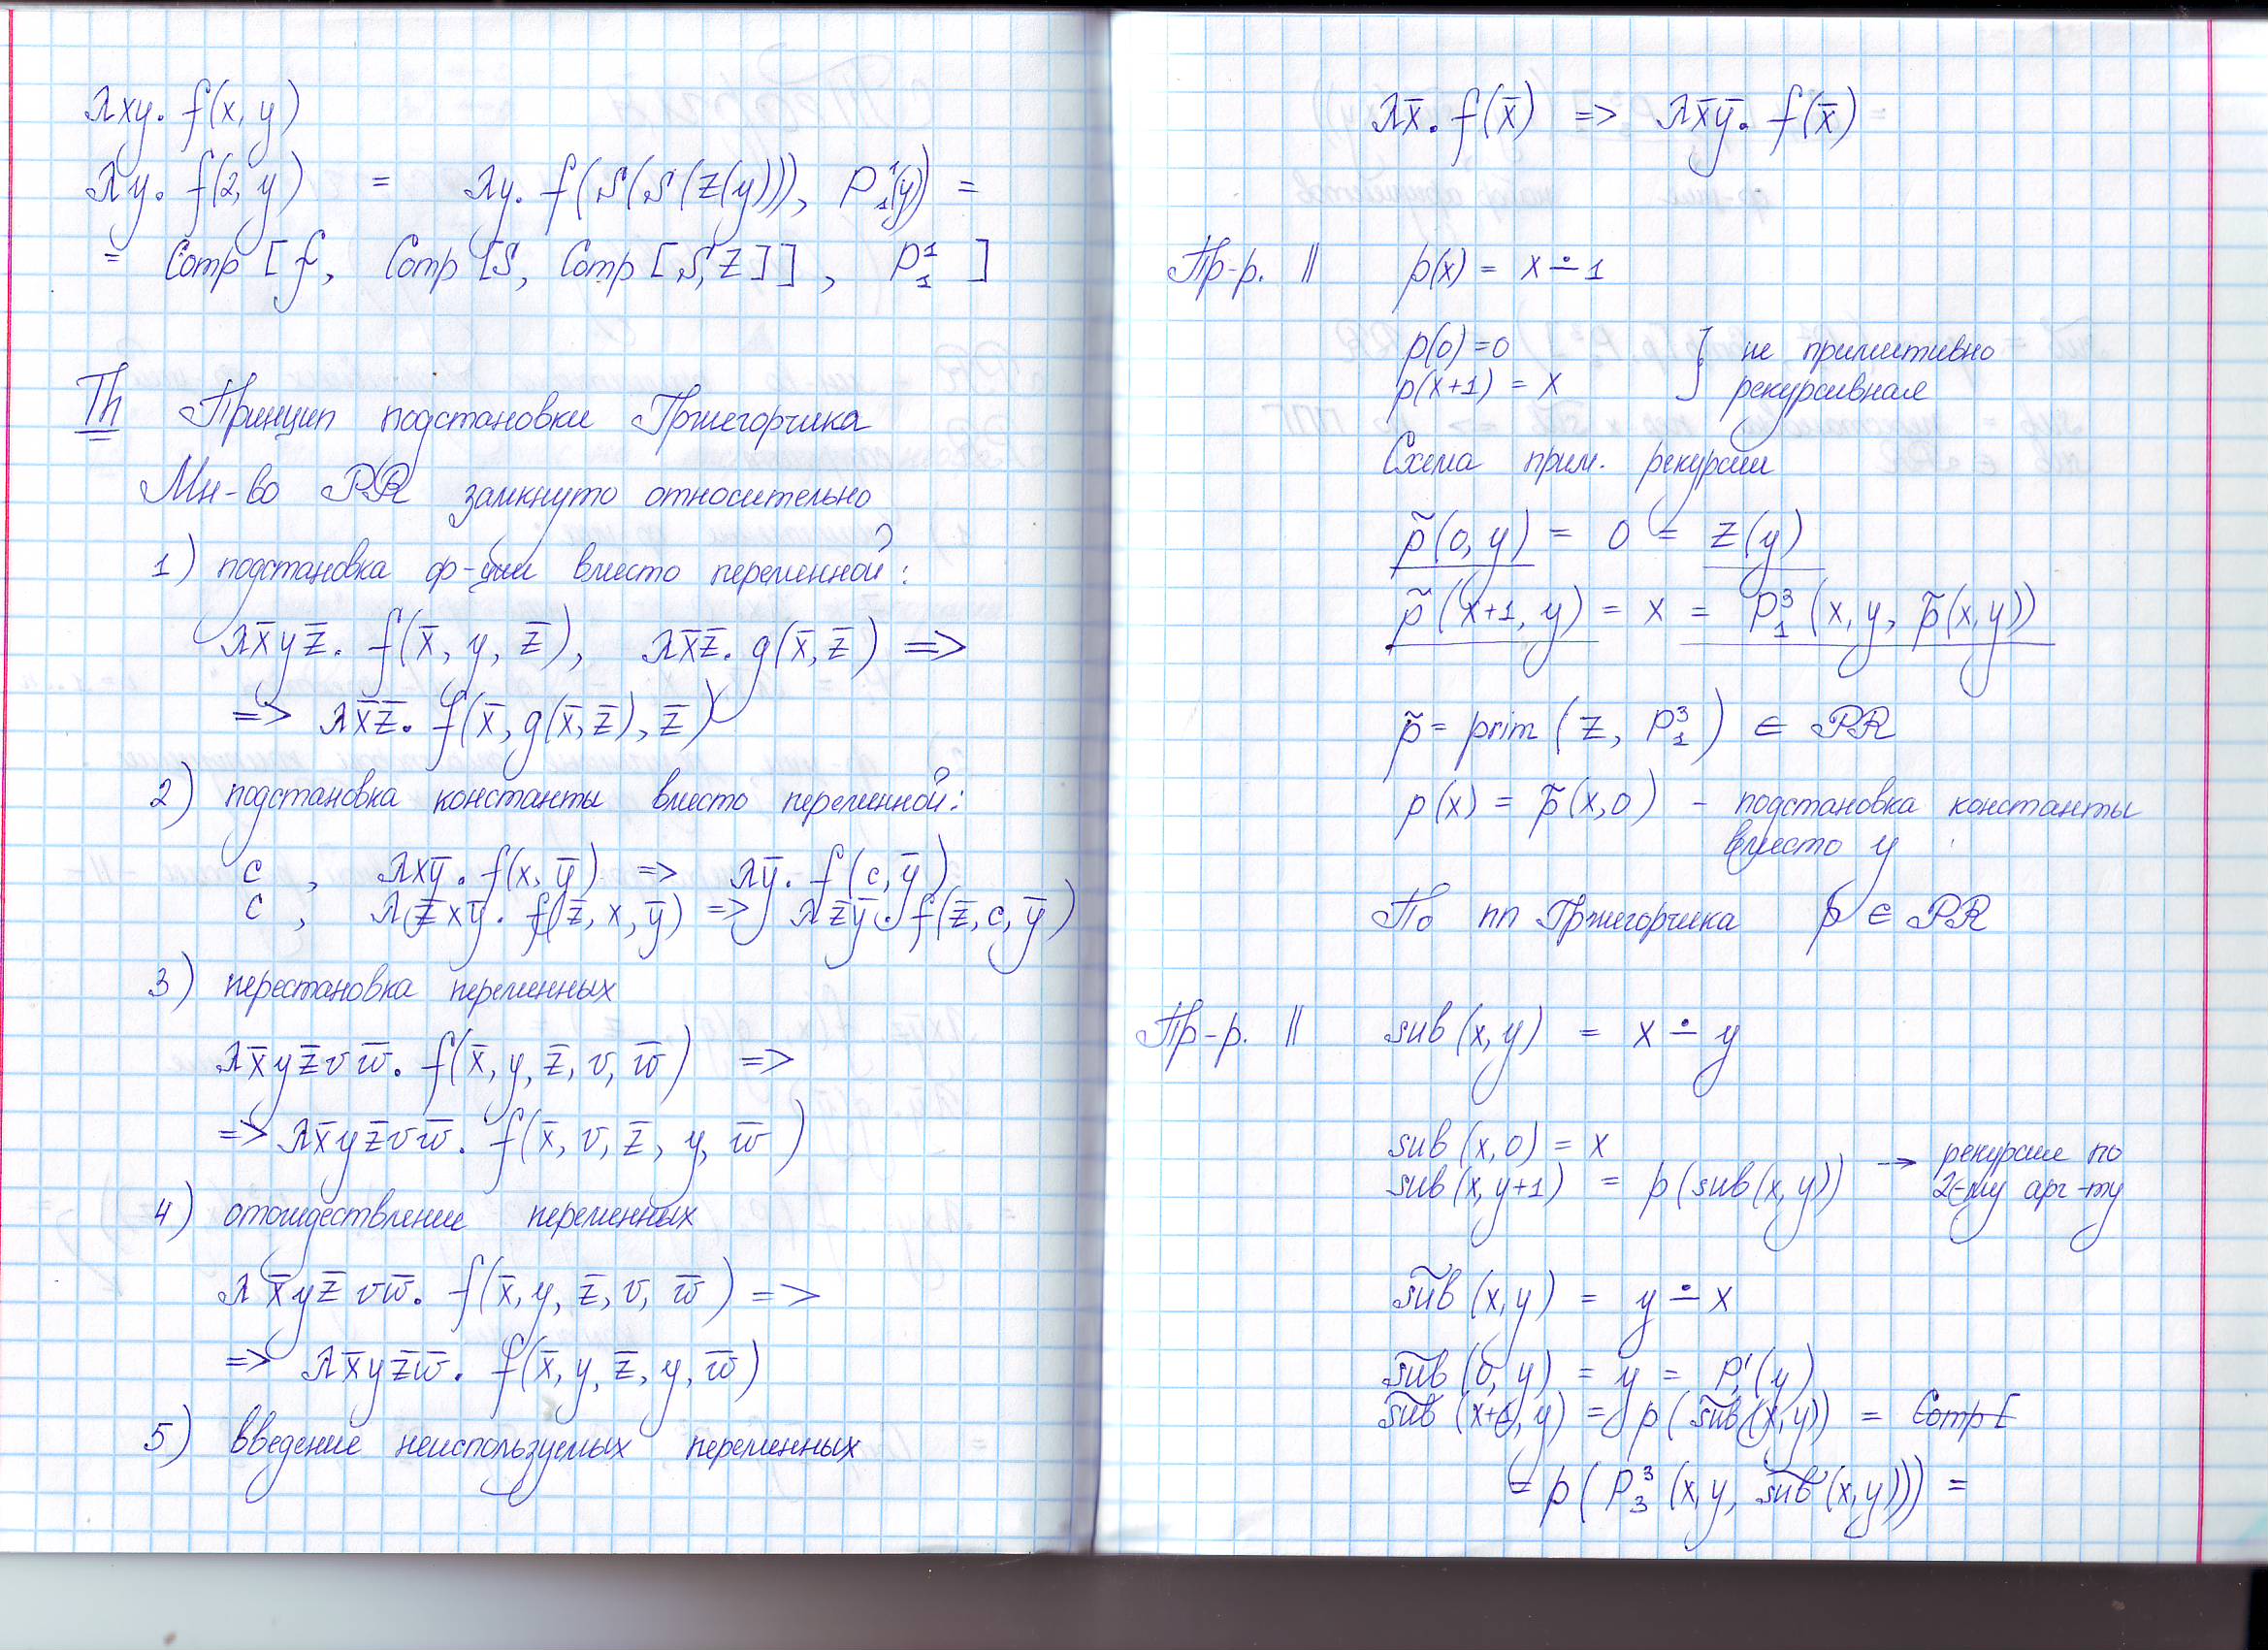 λxy. f(x, y)
λy. f(2, y) = λy. f(S(S(Z(y))), P₁¹(y)) =
= Comp [f, Comp [S, Comp [S, Z]], P₁¹ ]
Th Принцип подстановки Гржегорчика
Мн-во PR замкнуто относительно
1) подстановка ф-ции вместо переменной:
λx̄yz̄. f(x̄, y, z̄), λx̄z̄. g(x̄, z̄) =>
=> λx̄z̄. f(x̄, g(x̄, z̄), z̄)
2) подстановка константы вместо переменной:
c , λxȳ. f(x, ȳ) => λȳ. f(c, ȳ)
c , λz̄xȳ. f(z̄, x, ȳ) => λz̄ȳ. f(z̄, c, ȳ)
3) перестановка переменных
λx̄yz̄vw̄. f(x̄, y, z̄, v, w̄) =>
=> λx̄yz̄vw̄. f(x̄, v, z̄, y, w̄)
4) отождествление переменных
λx̄yz̄vw̄. f(x̄, y, z̄, v, w̄) =>
=> λx̄yz̄w̄. f(x̄, y, z̄, y, w̄)
5) введение неиспользуемых переменных
λx̄. f(x̄) => λx̄ȳ. f(x̄)
Пр-р. || p(x) = x ∸ 1
p(0) = 0 } не примитивно
p(x+1) = x рекурсивная
Схема прим. рекурсии
p̃(0, y) = 0 = Z(y)
p̃(x+1, y) = x = P₁³(x, y, p̃(x, y))
p̃ = prim (Z, P₁³) ∈ PR
p(x) = p̃(x, 0) - подстановка константы
вместо y
По пп Гржегорчика p ∈ PR
Пр-р. || sub (x, y) = x ∸ y
sub (x, 0) = x
sub (x, y+1) = p(sub(x, y)) → рекурсия по
2-му арг-ту
s̃ub (x, y) = y ∸ x
s̃ub (0, y) = y = P₁¹(y)
s̃ub (x+1, y) = p(s̃ub(x, y)) = Comp [
= p(P₃³(x, y, s̃ub(x, y))) =